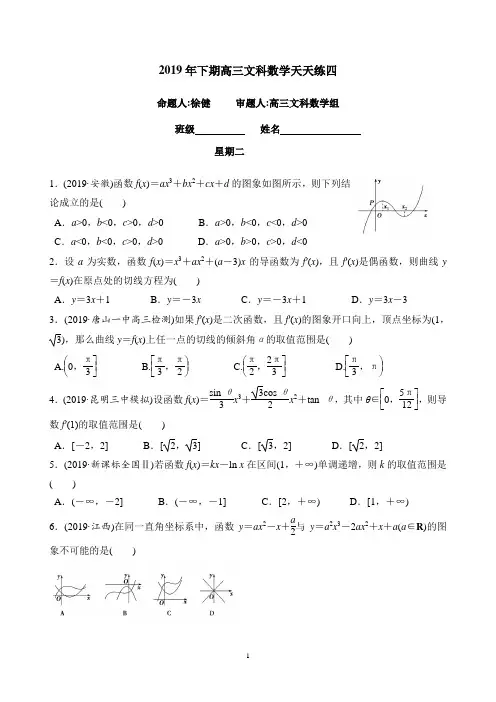 2019年下期高三文科数学天天练四
命题人:徐健 审题人:高三文科数学组
班级 姓名
星期二
1．(2019·安徽)函数f(x)＝ax³＋bx²＋cx＋d的图象如图所示，则下列结
论成立的是( )
A．a>0，b<0，c>0，d>0 B．a>0，b<0，c<0，d>0
C．a<0，b<0，c>0，d>0 D．a>0，b>0，c>0，d<0
y P O x₁ x₂ x
2．设a为实数，函数f(x)＝x³＋ax²＋(a－3)x的导函数为f′(x)，且f′(x)是偶函数，则曲线y
＝f(x)在原点处的切线方程为( )
A．y＝3x＋1 B．y＝－3x C．y＝－3x＋1 D．y＝3x－3
3．(2019·唐山一中高三检测)如果f′(x)是二次函数，且f′(x)的图象开口向上，顶点坐标为(1，
√3)，那么曲线y＝f(x)上任一点的切线的倾斜角α的取值范围是( )
A.(0，π/3] B.[π/3，π/2) C.(π/2，2π/3] D.[π/3，π)
4．(2019·昆明三中模拟)设函数f(x)＝sin θ/3 x³＋√3cos θ/2 x²＋tan θ，其中θ∈[0，5π/12]，则导
数f′(1)的取值范围是( )
A．[－2，2] B．[√2，√3] C．[√3，2] D．[√2，2]
5．(2019·新课标全国Ⅱ)若函数f(x)＝kx－ln x在区间(1，＋∞)单调递增，则k的取值范围是
( )
A．(－∞，－2] B．(－∞，－1] C．[2，＋∞) D．[1，＋∞)
6．(2019·江西)在同一直角坐标系中，函数y＝ax²－x＋a/2与y＝a²x³－2ax²＋x＋a(a∈R)的图
象不可能的是( )
A B C D
1